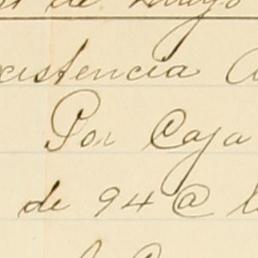 de Mayo
xistencia
Por Caja
de 94 @